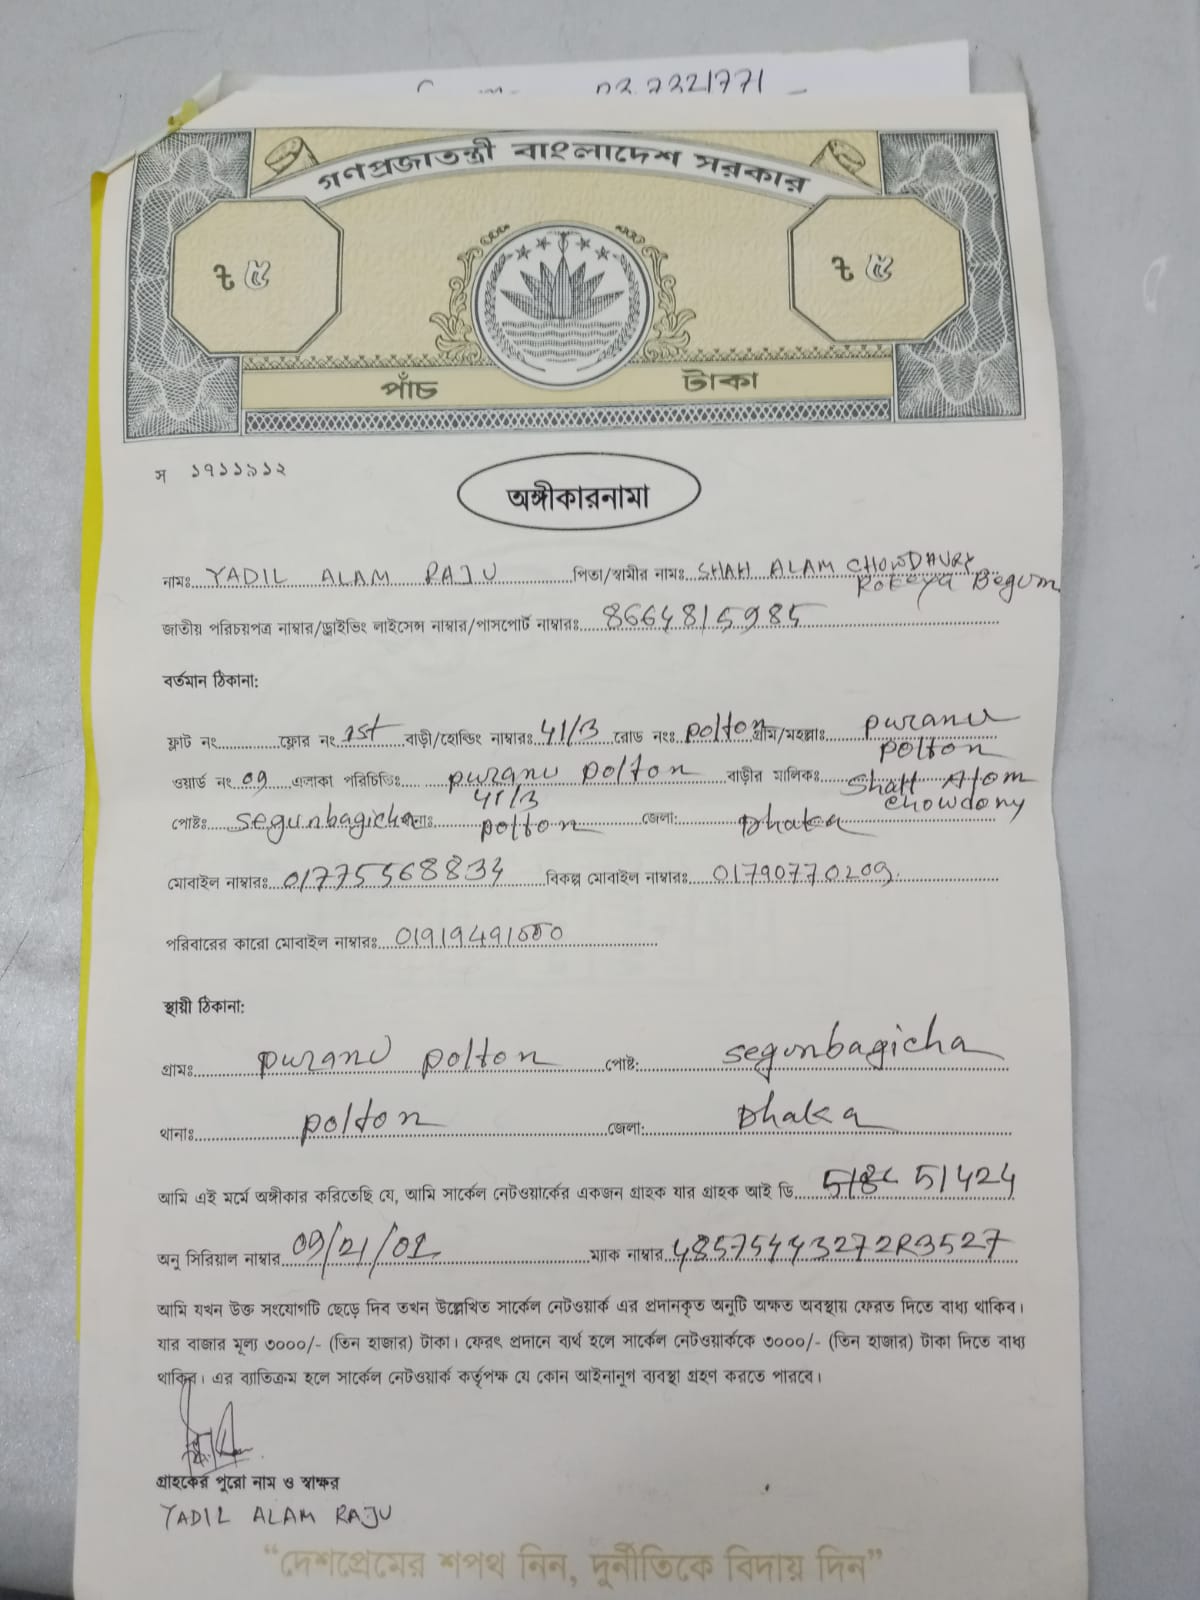 03.7321771
গণপ্রজাতন্ত্রী বাংলাদেশ সরকার
৳ ৫ ৳ ৫
পাঁচ টাকা
স ১৭১১৯১২
অঙ্গীকারনামা
নামঃ YADIL ALAM RAJU পিতা/স্বামীর নামঃ SHAH ALAM CHOWDHURY
Rokeya Begum
জাতীয় পরিচয়পত্র নাম্বার/ড্রাইভিং লাইসেন্স নাম্বার/পাসপোর্ট নাম্বারঃ 8664815985
বর্তমান ঠিকানা:
ফ্লাট নং ফ্লোর নং 1st বাড়ী/হোল্ডিং নাম্বারঃ 41/3 রোড নংঃ polton গ্রাম/মহল্লাঃ purano
polton
ওয়ার্ড নং 09 এলাকা পরিচিতিঃ purano polton বাড়ীর মালিকঃ Shah Alom
41/3 chowdony
পোষ্টঃ segunbagicha থানাঃ polton জেলা: Dhaka
মোবাইল নাম্বারঃ 01775568834 বিকল্প মোবাইল নাম্বারঃ 01790770209
পরিবারের কারো মোবাইল নাম্বারঃ
স্থায়ী ঠিকানা:
গ্রামঃ purano polton পোষ্ট: segunbagicha
থানাঃ polton জেলা: Dhaka
আমি এই মর্মে অঙ্গীকার করিতেছি যে, আমি সার্কেল নেটওয়ার্কের একজন গ্রাহক যার গ্রাহক আই ডি 51424
অনু সিরিয়াল নাম্বার 09/21/01 ম্যাক নাম্বার 48575443272R3527
আমি যখন উক্ত সংযোগটি ছেড়ে দিব তখন উল্লেখিত সার্কেল নেটওয়ার্ক এর প্রদানকৃত অনুটি অক্ষত অবস্থায় ফেরত দিতে বাধ্য থাকিব।
যার বাজার মূল্য ৩০০০/- (তিন হাজার) টাকা। ফেরৎ প্রদানে ব্যর্থ হলে সার্কেল নেটওয়ার্ককে ৩০০০/- (তিন হাজার) টাকা দিতে বাধ্য
থাকিব। এর ব্যতিক্রম হলে সার্কেল নেটওয়ার্ক কর্তৃপক্ষ যে কোন আইনানুগ ব্যবস্থা গ্রহণ করতে পারবে।
গ্রাহকের পুরো নাম ও স্বাক্ষর
YADIL ALAM RAJU
“দেশপ্রেমের শপথ নিন, দুর্নীতিকে বিদায় দিন”